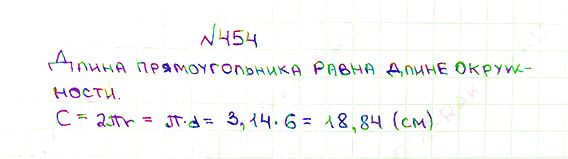 №454
Длина прямоугольника равна длине окруж-
ности.
C = 2πr = π·d = 3,14·6 = 18,84 (см)